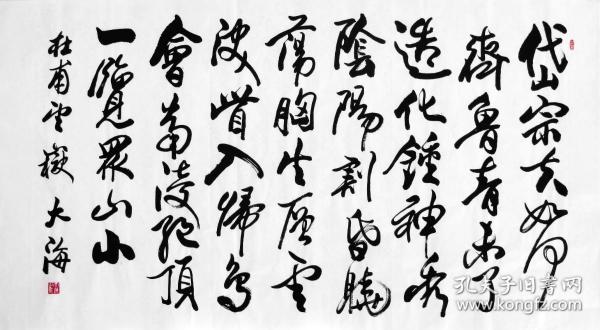 岱宗夫如何
齊魯青未了
造化鍾神秀
陰陽割昏曉
蕩胸生層雲
決眥入歸鳥
會當凌絕頂
一覽眾山小
杜甫望嶽 大海
孔夫子旧书网
www.kongfz.com